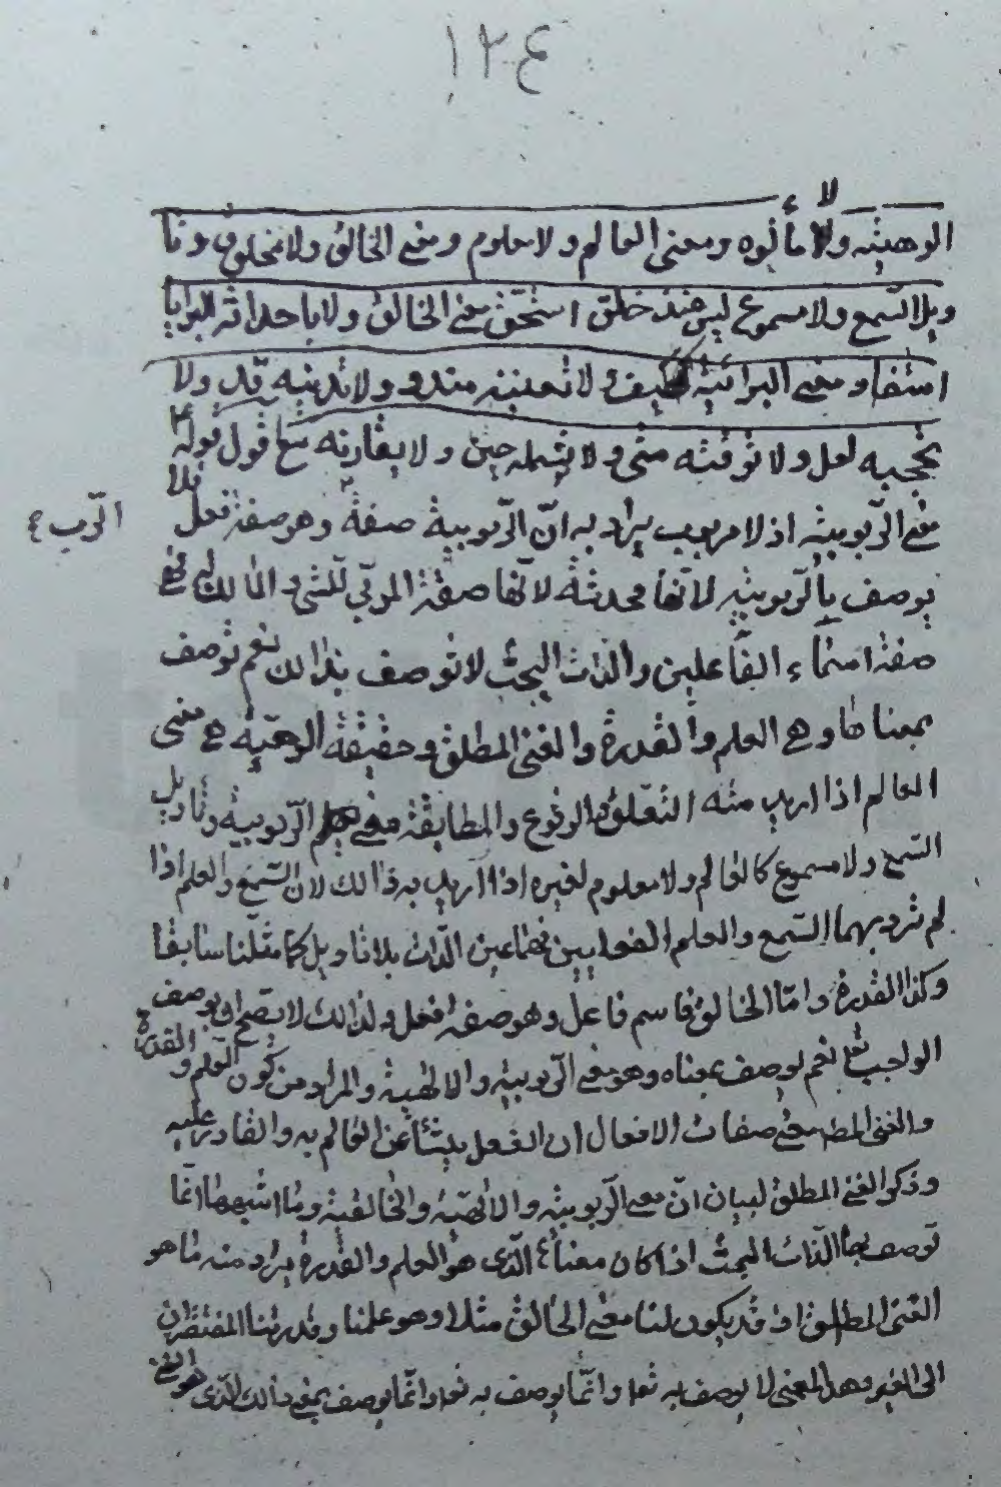 ١٢٤
الوهيته ولا مألوه ومعنى العالم ولا معلوم ومعنى الخالق ولا مخلوق وتا
ويل السّمع ولا مسموع ليس منذ خلق استحق معنى الخالق ولا باحداثه البرايا
استفاد معنى البرائيّة كيف ولا تعينه منذ ولا تدنيه قد ولا
تحجبه لعل ولا توقته متى ولا يشمله حين ولا يقارنه مع قول قوله
الرّب ع
معنى الرّبوبيته اذ لا مربوب يراد به انّ الرّبوبية صفة وهو صفة فعل فلا
يوصف بالرّبوبيته لانّها محدثة لانّها صفة المربّي للشيء المالك له فهي
صفة اسماء الفاعلين والذات البحت لا توصف بذالك نعم توصف
بمعناها وهي العلم والقدرة والغنى المطلق وحقيقة الوهيّته هي معنى
العالم اذا اريد منه التعلّق والوقوع والمطابقة معنى الرّبوبية وتاويل
السّمع ولا مسموع كالعالم ولا معلوم لغيره اذا اريد به ذالك لان السّمع والعلم اذا
لم ترد بهما السّمع والعلم الفعليين فهما عين الذّات بلا تاويل كما مثّلنا سابقا
وكذا القدرة وامّا الخالق فاسم فاعل وهو صفة فعل ولذالك لا يصحّ ان يوصف
الواجب تعا نعم يوصف بمعناه وهو معنى الرّبوبيّة والالهيّة والمراد من كون العلم والقدرة
والغنى المط معنى صفات الافعال ان الفعل ينشأ عن العالم به والقادر عليه
وذكر الغنى المطلق لبيان انّ معنى الرّبوبيّة والالهيّة والخالقيّة وما اشبهها انّما
توصف بها الذّات البحت اذا كان معناها الّذي هو العلم والقدرة يراد منه ما هو
الغنى المطلق اذ قد يكون لنا معنى الخالق مثلا وهو علمنا وقدرتنا المفتقران
الى الغير وهذا المعنى لا يوصف به تعا وانّما يوصف به تعا وانّما يوصف بمعنى ذالك الّذي هو الغنى